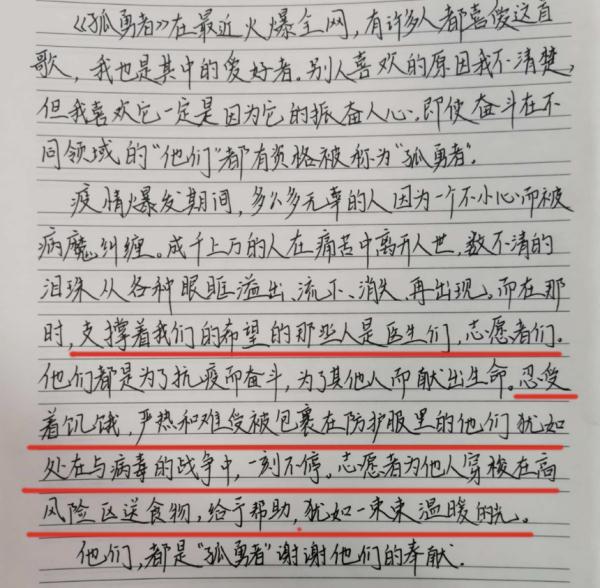 《孤勇者》在最近火爆全网，有许多人都喜爱这首
歌，我也是其中的爱好者。别人喜欢的原因我不清楚，
但我喜欢它一定是因为它的振奋人心，即使奋斗在不
同领域的“他们”都有资格被称为“孤勇者”。
疫情爆发期间，多么多无辜的人因为一个不小心而被
病魔纠缠。成千上万的人在痛苦中离开人世，数不清的
泪珠从各种眼眶溢出、流下、消失、再出现。而在那
时，支撑着我们的希望的那些人是医生们，志愿者们。
他们都是为了抗疫而奋斗，为了其他人而献出生命。忍受
着饥饿，严热和难受被包裹在防护服里的他们犹如
处在与病毒的战争中，一刻不停。志愿者为他人穿梭在高
风险区送食物，给予帮助，犹如一束束温暖的光。
他们，都是“孤勇者”谢谢他们的奉献.